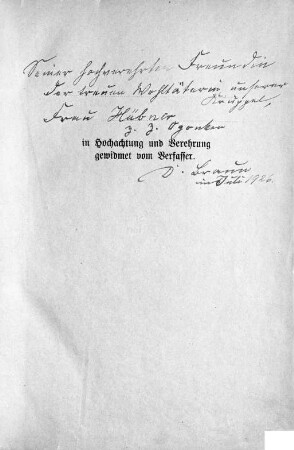 Seiner hochverehrten Freundin
der treuen Wohltäterin unserer
Krüppel,
Frau Hübner
z. Z.
in Hochachtung und Verehrung
gewidmet vom Verfasser.
D. Braun
im Juli 1926.